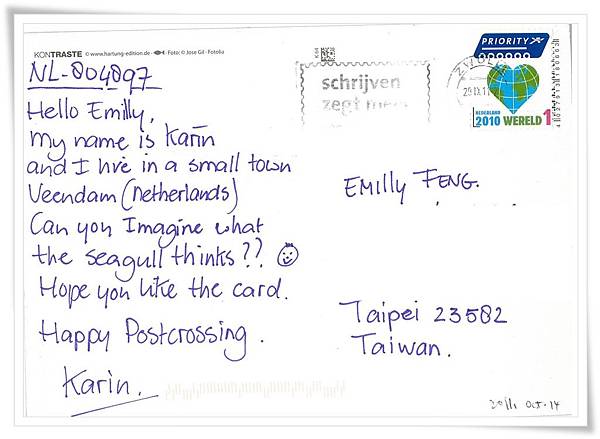 KONTRASTE © www.hartung-edition.de Foto: © Jose Gil - Fotolia
NL-804897
Hello Emilly,
my name is Karin
and I live in a small town
Veendam (Netherlands)
Can you Imagine what
the seagull thinks??
Hope you like the card.
Happy Postcrossing.
Karin.
schrijven
zegt meer
ZWOLLE
PRIORITY
NEDERLAND
2010 WERELD 1
EMILLY FENG.
Taipei 23582
Taiwan.
2011. Oct. 14